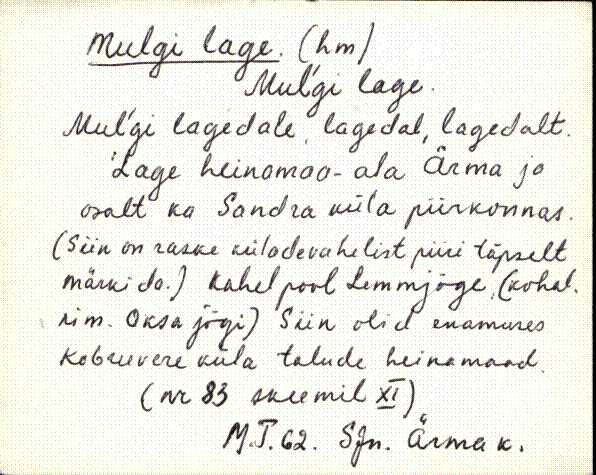 Mulgi lage. (hm)
Mul'gi lage.
Mul'gi lagedale, lagedal, lagedalt.
Lage heinamaa-ala Ärma ja
osalt ka Sandra küla piirkonnas.
(Siin on raske küladevahelist piiri täpselt
märkida.) Kahel pool Lemmjõge, (kohal.
nim. Oksa jõgi) Siin olid enamuses
Kobruvere küla talude heinamaad.
(nr 83 skeemil XI)
M.T.62. SJn. Ärma k.